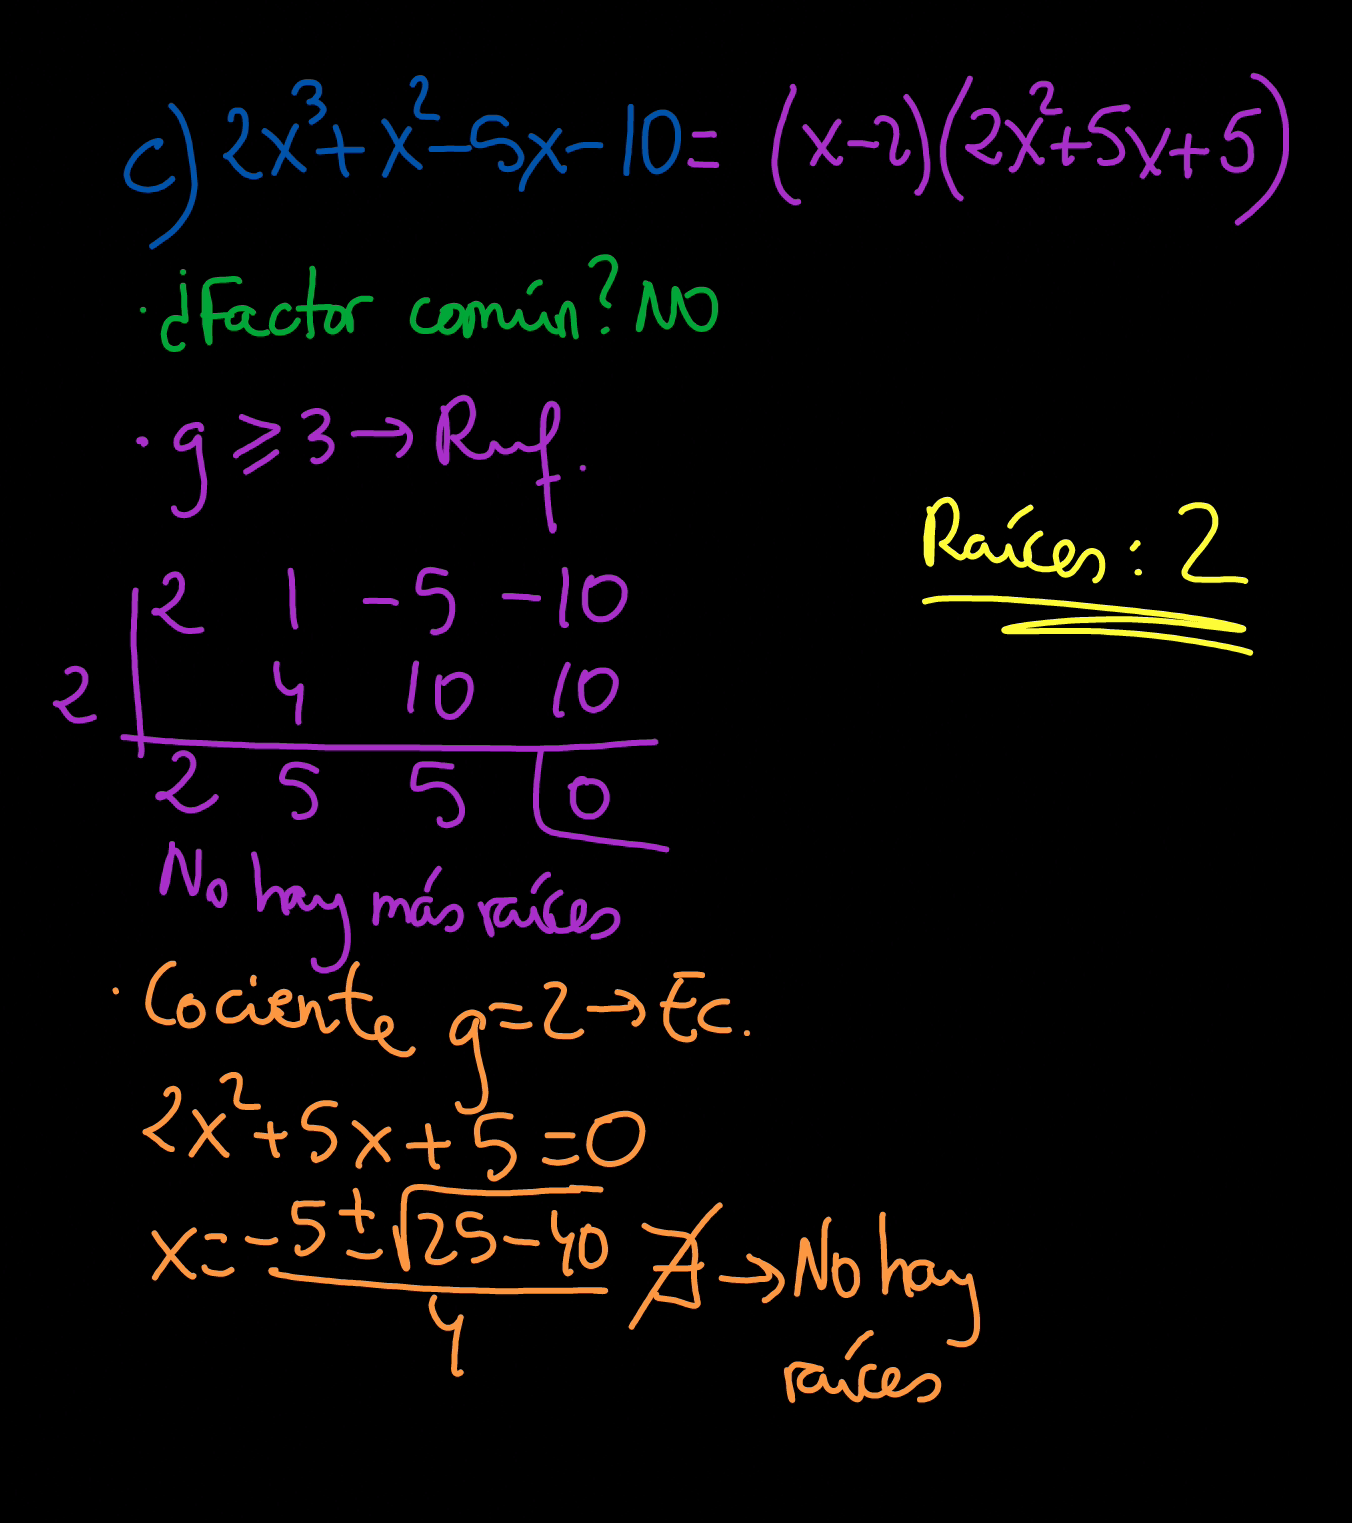 c) 2x³+x²-5x-10= (x-2)(2x²+5x+5)
· ¿Factor común? NO
· g ≥ 3 → Ruf.
Raíces: 2
2 1 -5 -10
2 4 10 10
2 5 5 0
No hay más raíces
· Cociente g=2 → Ec.
2x²+5x+5=0
x= -5±√25-40 / 4 ∄ → No hay
raíces